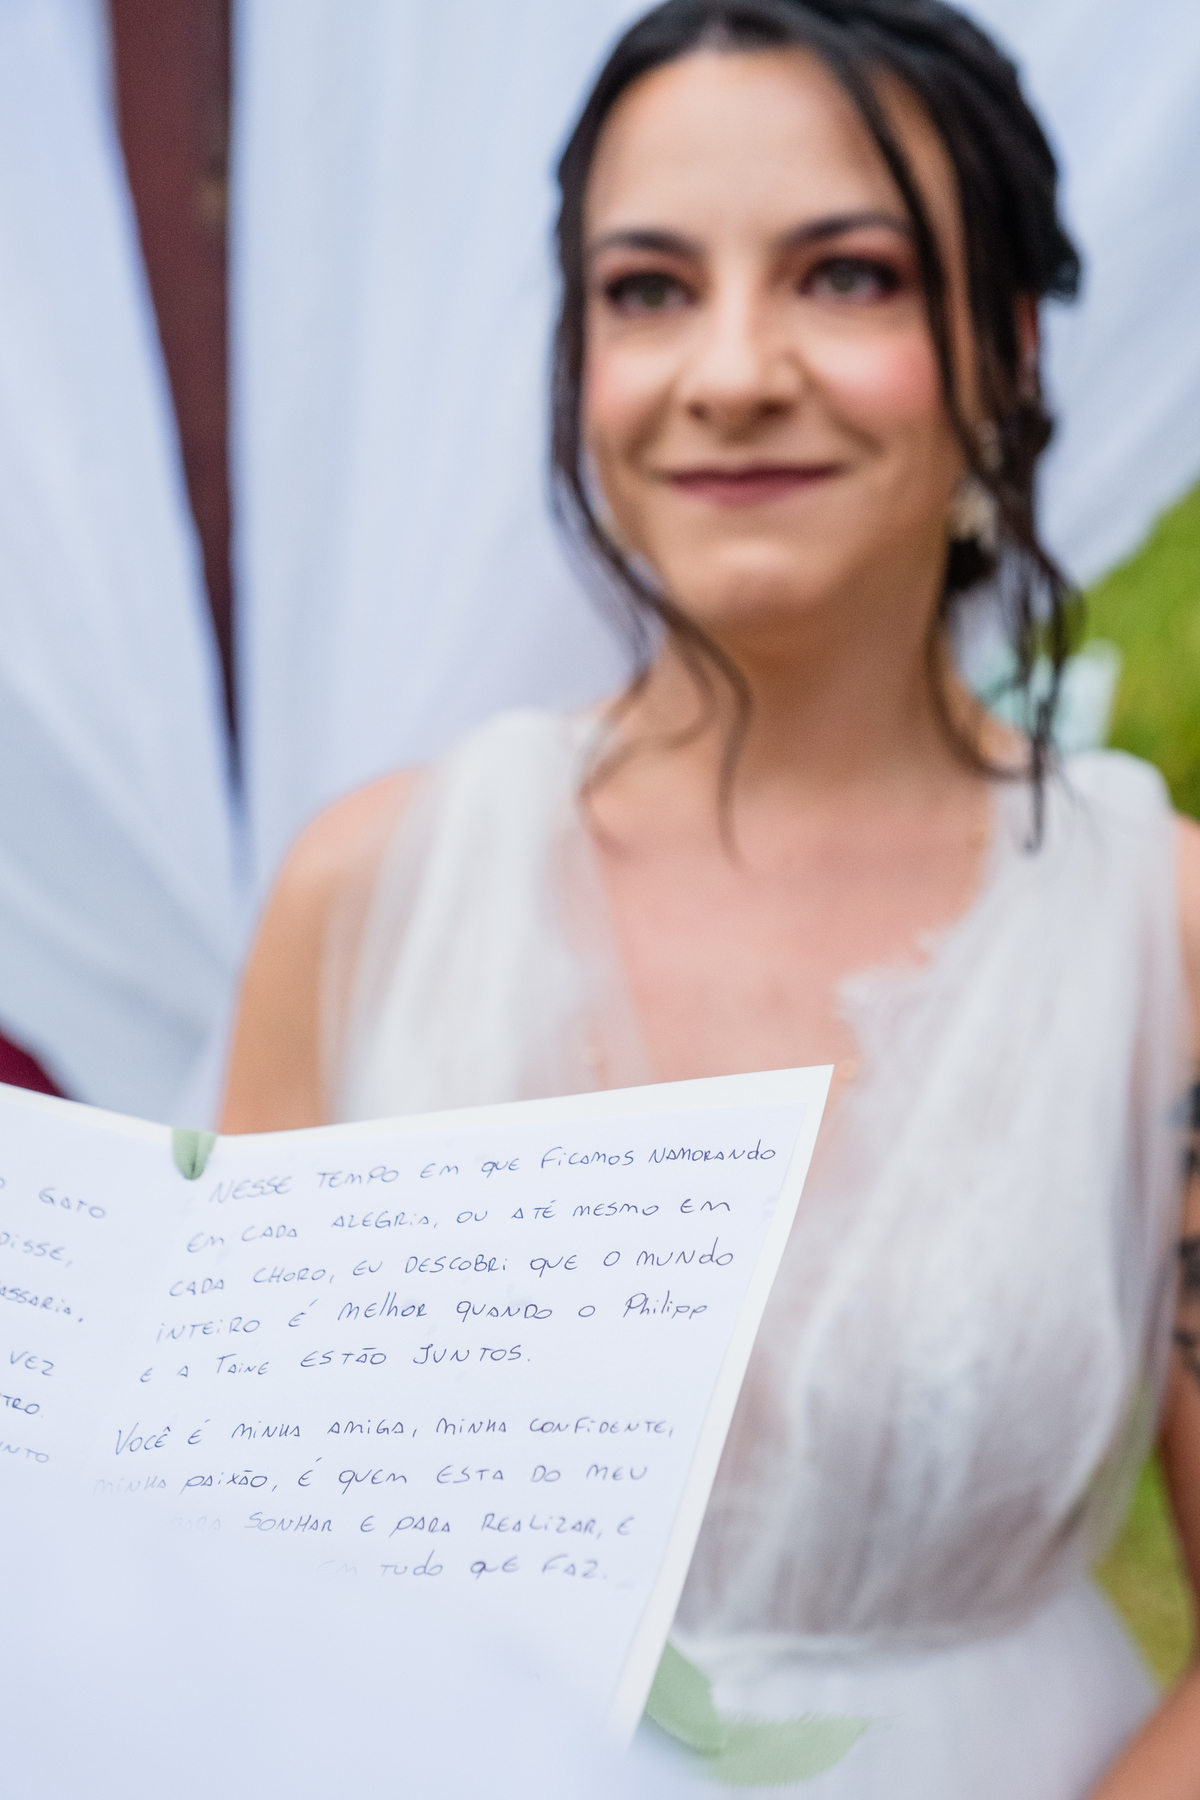 GATO
DISSE,
VEZ
NESSE TEMPO EM QUE FICAMOS NAMORANDO
EM CADA ALEGRIA, OU ATÉ MESMO EM
CADA CHORO, EU DESCOBRI QUE O MUNDO
INTEIRO É MELHOR QUANDO O Philipp
E A TAINE ESTÃO JUNTOS.
VOCÊ É MINHA AMIGA, MINHA CONFIDENTE,
MINHA PAIXÃO, É QUEM ESTA DO MEU
SONHAR E PARA REALIZAR, E
EM TUDO QUE FAZ.